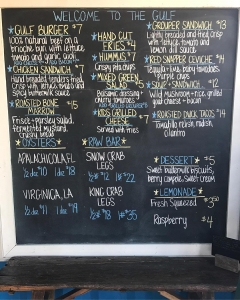 WELCOME TO THE GULF
GULF BURGER $7
100% natural beef on a
brioche bun with lettuce
tomato and garlic aioli
CHICKEN SANDWICH
Hand breaded tenders fried
crisp with lettuce tomato and
basil chipotle mayo
ROASTED BONE
MARROW
Frisée + parsley salad,
fermented mustard,
crusty bread
OYSTERS
APALACHICOLA, FL
1/2 dz $10 1 dz $18
VIRGINICA, LA
1/2 dz $11 1 dz $19
HAND CUT
FRIES $4
HUMMUS $7
Crispy Pitachips
MIXED GREEN
SALAD
Balsamic dressing
cherry tomatoes
KIDS GRILLED
CHEESE $7
Served with fries
RAW BAR
SNOW CRAB
LEGS
1/2# $12 1# $22
KING CRAB
LEGS
1/2# $18 1# $35
GROUPER SANDWICH $13
Lightly breaded and fried crisp
with lettuce, tomato and
lemon dill sauce
RED SNAPPER CEVICHE $14
Tomato, lime, bell, tomatoes
purple chips
SOUP + SANDWICH $12
Wild mushroom + rice, grilled
goat cheese + bacon
ROASTED DUCK TACOS $14
Tomatillo relish, radish,
cilantro
DESSERT $5
Sweet buttermilk biscuits,
berry compote, sweet cream
LEMONADE
Fresh Squeezed $3.50
or
Raspberry $4